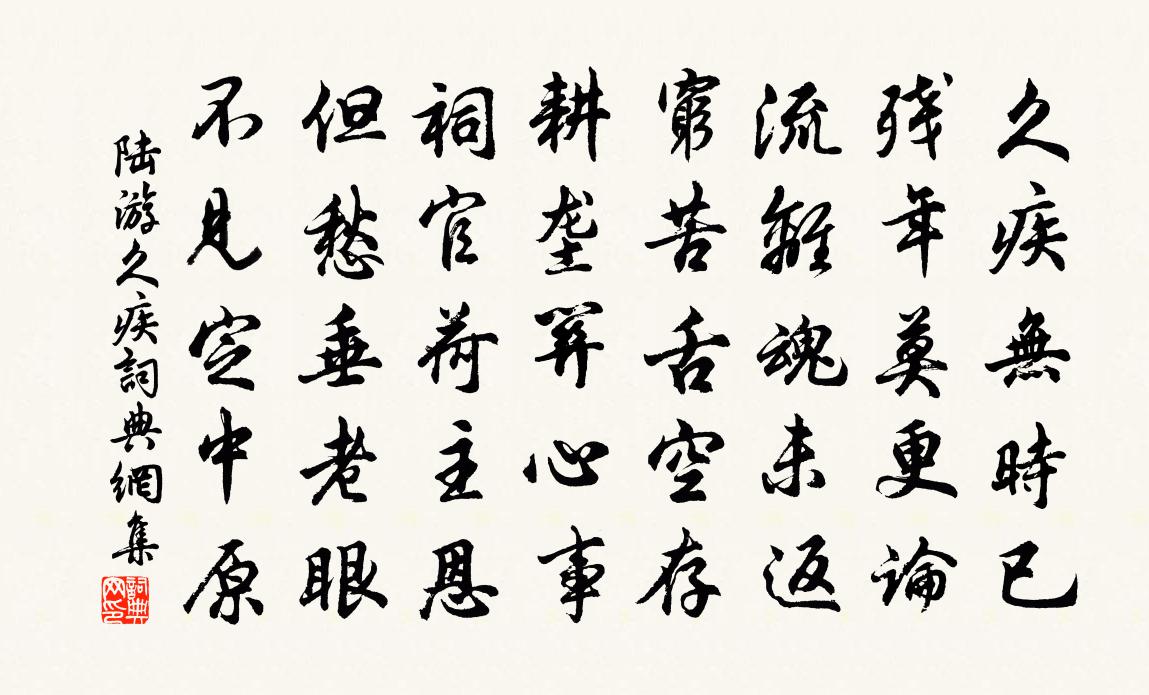 久疾無時已
残年莫更論
流離魂未返
窮苦舌空存
耕垄関心事
祠官荷主恩
但愁垂老眼
不見定中原
陆游久疾詞典網集
詞典網印